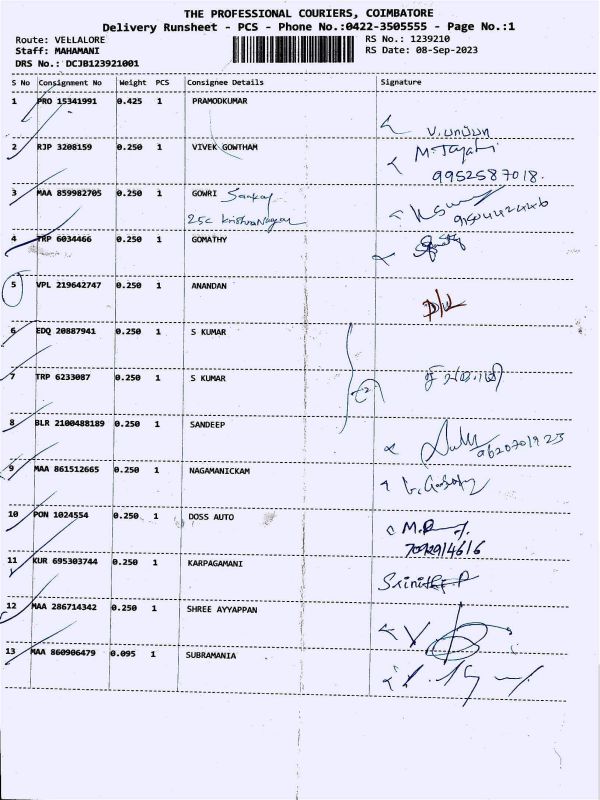 THE PROFESSIONAL COURIERS, COIMBATORE
Delivery Runsheet - PCS - Phone No.:0422-3505555 - Page No.:1
Route: VELLALORE RS No.: 1239210
Staff: MAHAMANI RS Date: 08-Sep-2023
DRS No.: DCJB123921001
S No Consignment No Weight PCS Consignee Details Signature
1 PRO 15341991 0.425 1 PRAMODKUMAR
2 RJP 3208159 0.250 1 VIVEK GOWTHAM
9952587018.
3 MAA 859982705 0.250 1 GOWRI Sankar
25c KrishnaNagar
4 TRP 6034466 0.250 1 GOMATHY
5 VPL 219642747 0.250 1 ANANDAN
D/L
6 EDQ 20887941 0.250 1 S KUMAR
7 TRP 6233087 0.250 1 S KUMAR
8 BLR 2100488189 0.250 1 SANDEEP
9620701923
9 MAA 861512665 0.250 1 NAGAMANICKAM
10 PON 1024554 0.250 1 DOSS AUTO
7092914616
11 KUR 695303744 0.250 1 KARPAGAMANI Srinithi P
12 MAA 286714342 0.250 1 SHREE AYYAPPAN
13 MAA 860906479 0.095 1 SUBRAMANIA